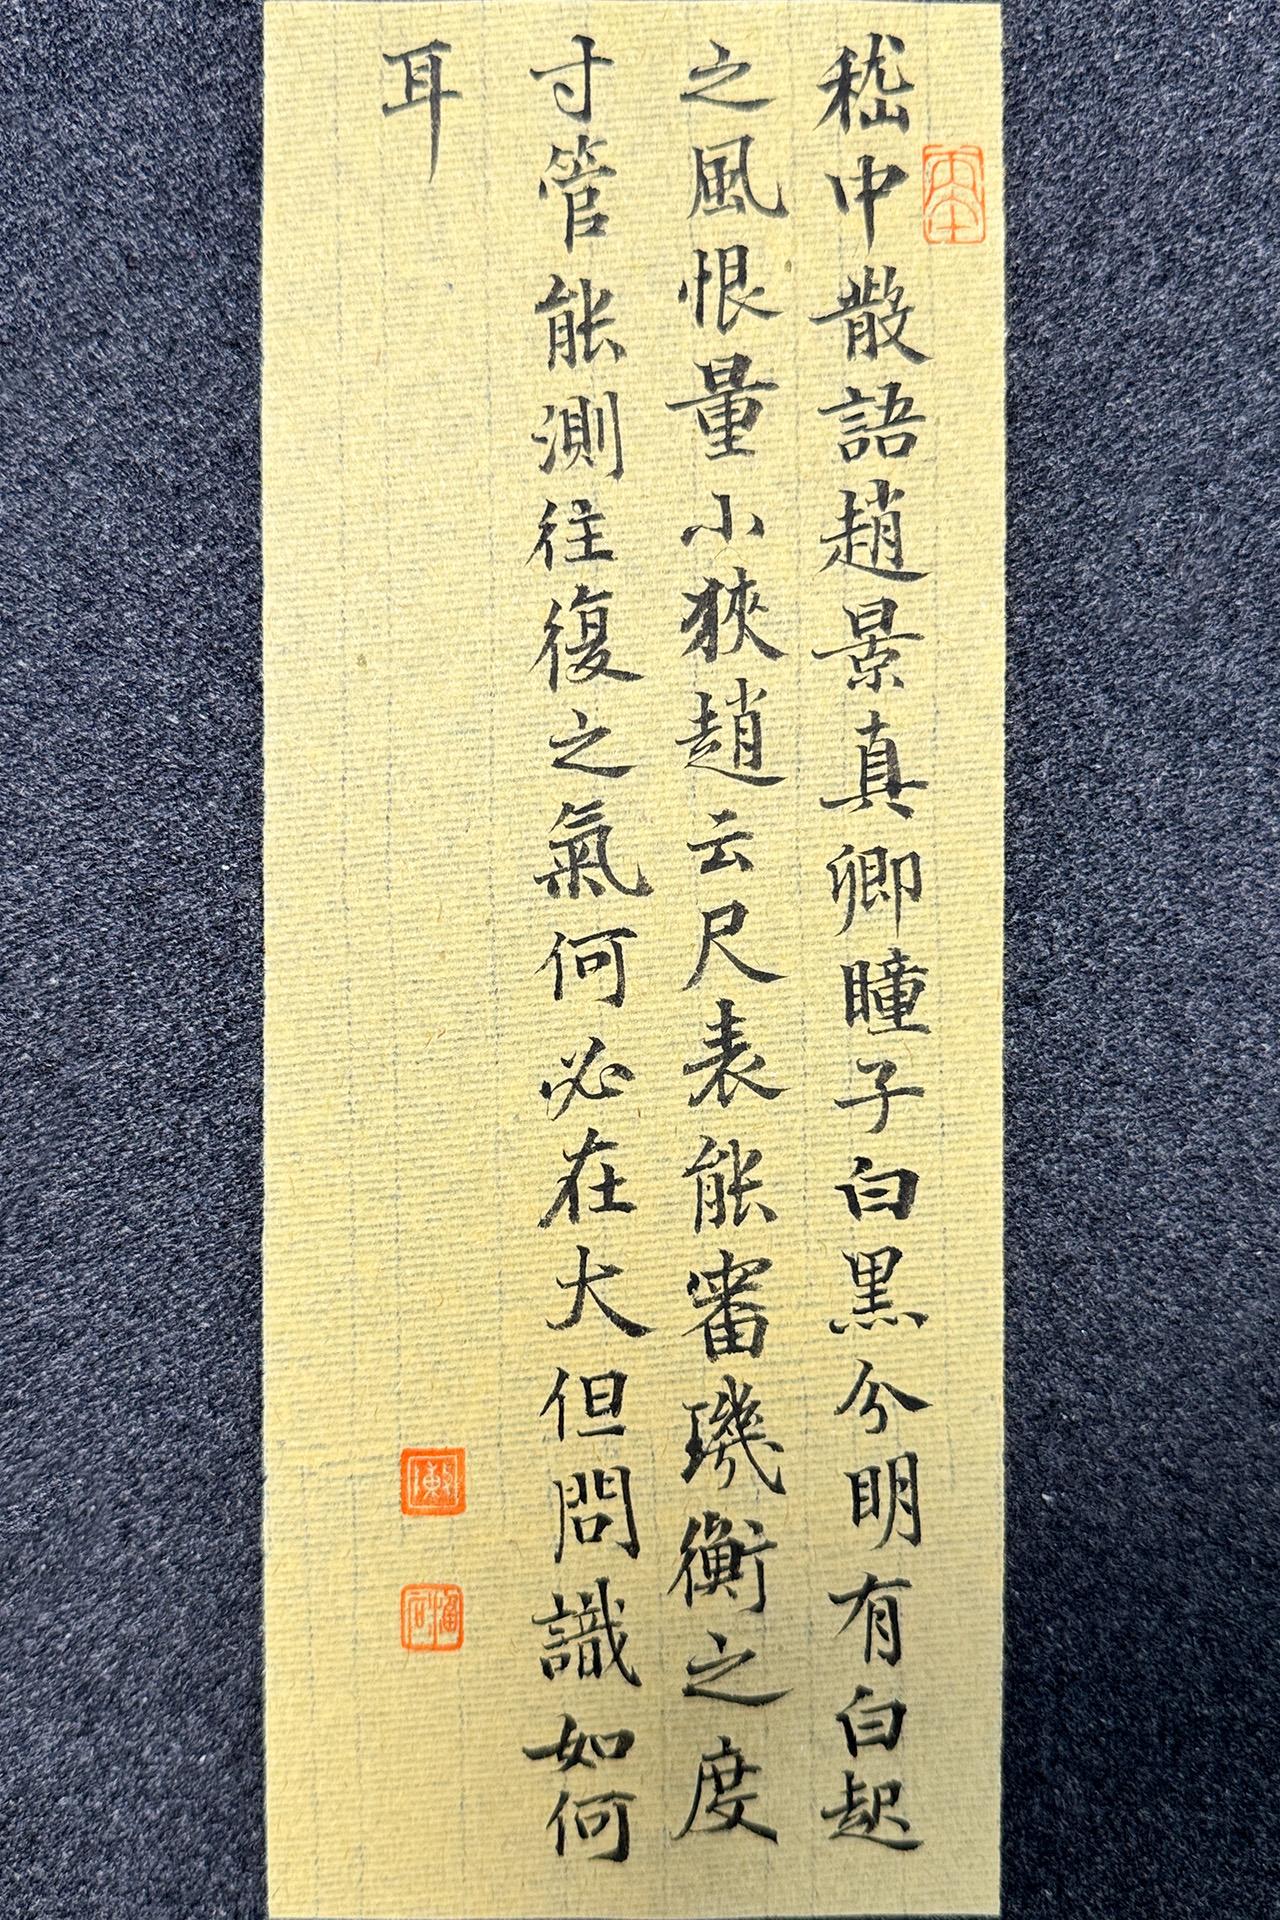 嵇中散語趙景真卿瞳子白黑分明有白起
之風恨量小狹趙云尺表能審璣衡之度
寸管能測往復之氣何必在大但問識如何
耳